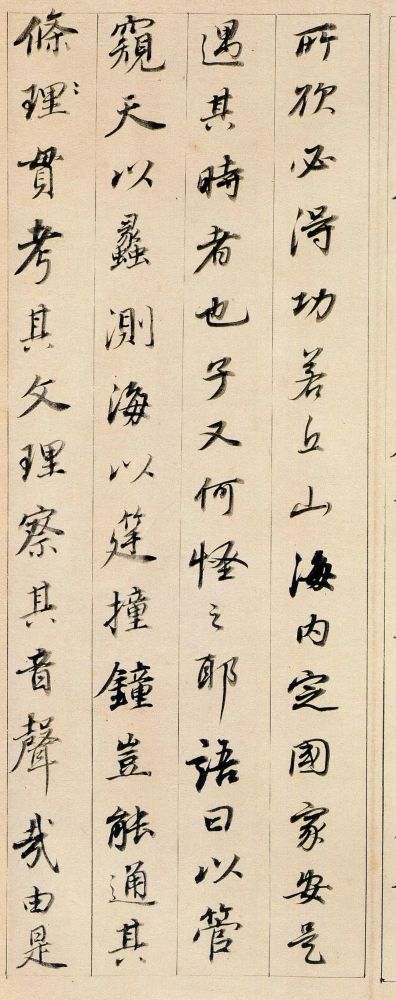 所欲必得功若丘山海内定國家安是
遇其時者也子又何怪之耶語曰以管
窺天以蠡測海以筳撞鐘豈能通其
條理〻貫考其文理察其音聲哉由是